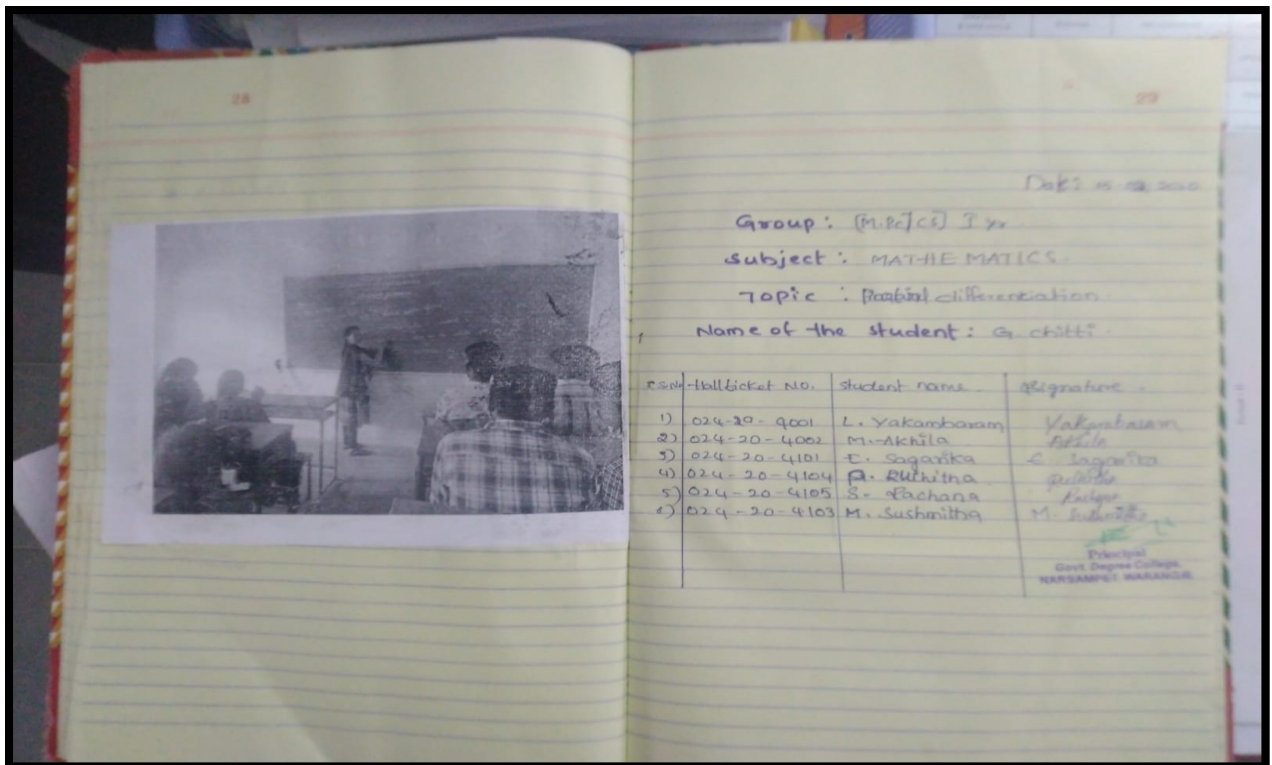 28
29
Date:
Group: [M.Pc] CS] I yr
Subject: MATHEMATICS.
Topic: Partial differentiation.
Name of the student: G. Chitti.
S.No Hallticket No. student name. Signature.
1) 024-20-4001 L. Yakambaram Yakambaram
2) 024-20-4002 M. Akhila Akhila
3) 024-20-4101 E. Sagarika E Sagarika
4) 024-20-4104 Ruchitha
5) 024-20-4105 S. Rachana
6) 024-20-4103 M. Sushmitha M. Sushmitha
Principal
Govt. Degree College,
NARSAMPET. WARANGAL